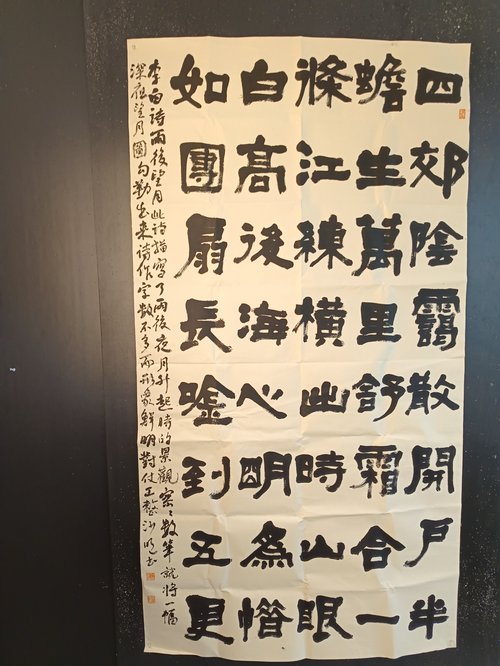 四郊陰靄散開戶半
蟾生萬里舒霜合一
條江練橫出時山眼
白高後海心明為惜
如團扇長唫到五更
李白詩雨後望月此詩描寫了雨後夜月升起時的景觀寥寥數筆就將一幅
深夜望月圖勾勒出来詩作字數不多而形象鮮明對仗工整